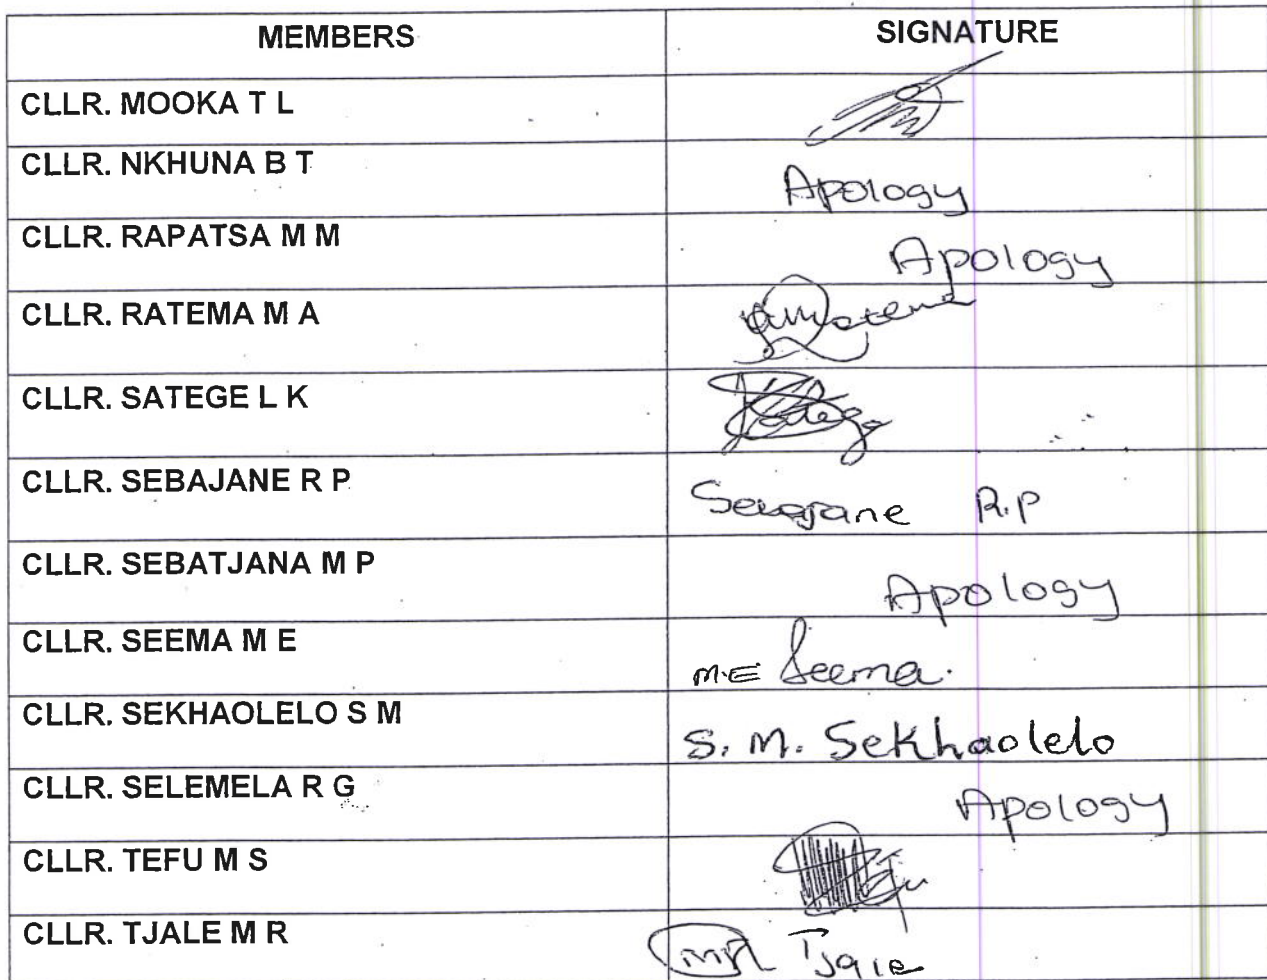 MEMBERS SIGNATURE
CLLR. MOOKA T L
CLLR. NKHUNA B T Apology
CLLR. RAPATSA M M Apology
CLLR. RATEMA M A
CLLR. SATEGE L K
CLLR. SEBAJANE R P Sebajane R.P
CLLR. SEBATJANA M P Apology
CLLR. SEEMA M E M.E Seema.
CLLR. SEKHAOLELO S M S. M. Sekhaolelo
CLLR. SELEMELA R G Apology
CLLR. TEFU M S
CLLR. TJALE M R MR Tjale